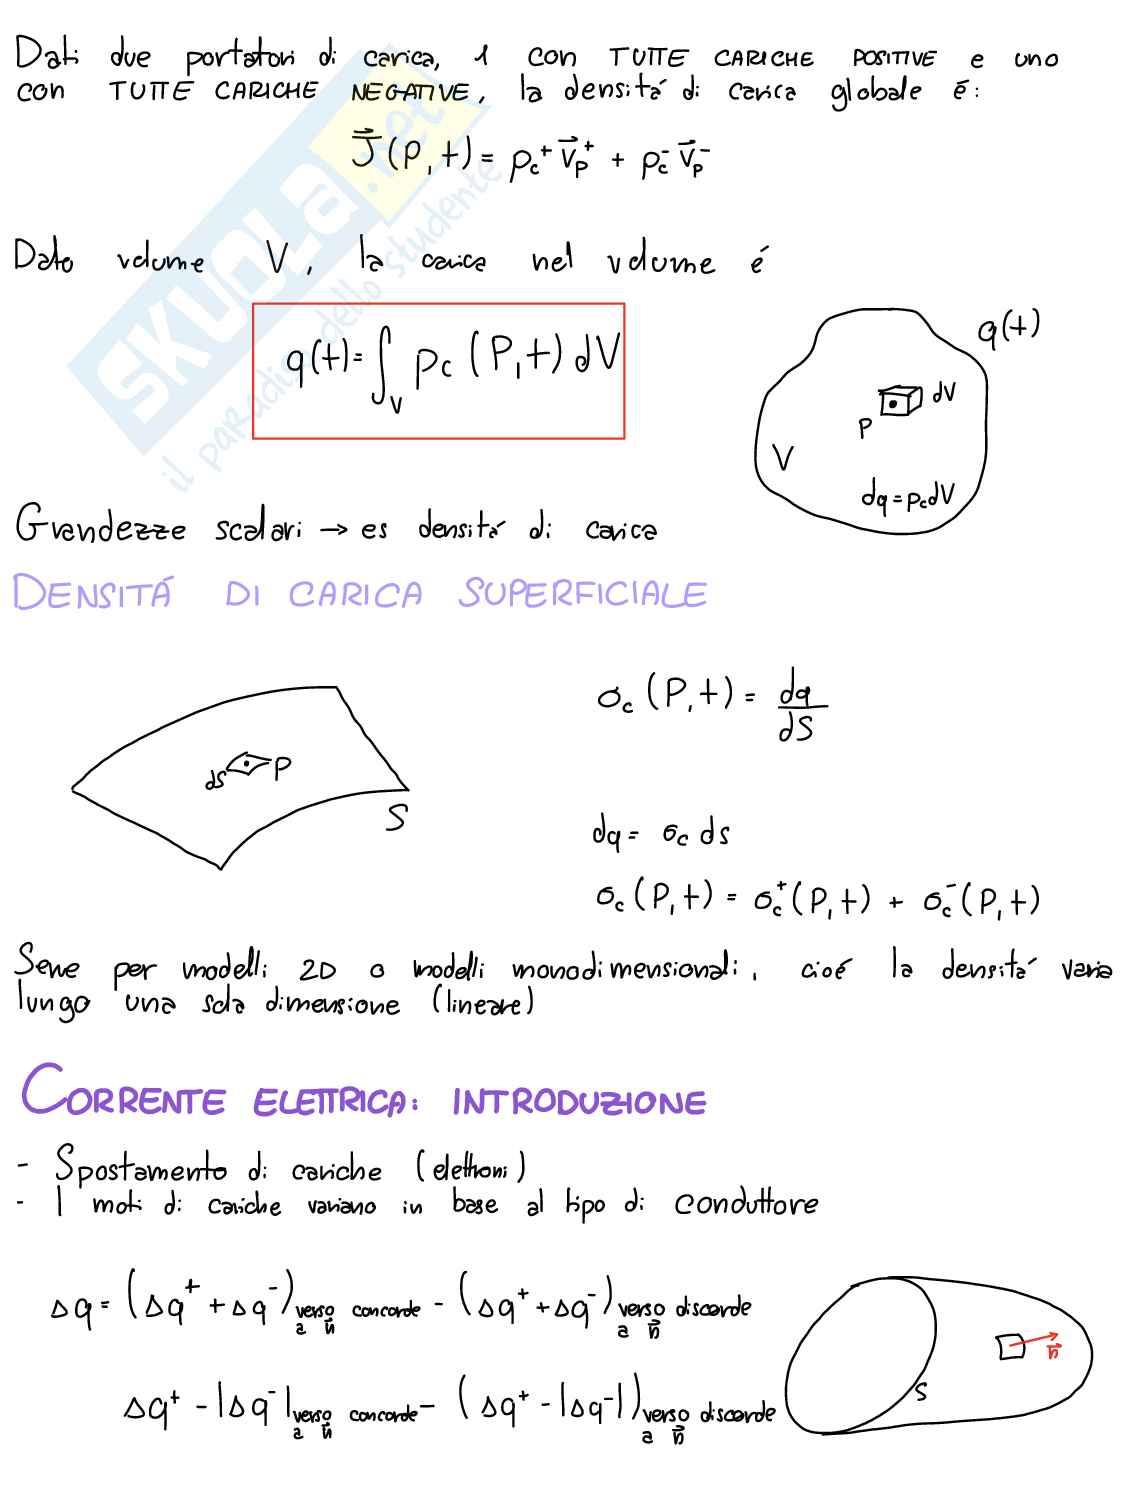 Dati due portatori di carica, 1 con TUTTE CARICHE POSITIVE e uno
con TUTTE CARICHE NEGATIVE, la densitá di carica globale é:
J⃗(P,t) = ρc⁺ v⃗p⁺ + ρc⁻ v⃗p⁻
Dato volume V, la carica nel volume é
q(t) = ∫V ρc (P,t) dV
q(t)
dV
P
V
dq = ρc dV
Grandezze scalari → es densitá di carica
DENSITÁ DI CARICA SUPERFICIALE
σc (P,t) = dq/dS
dS P
S
dq = σc ds
σc (P,t) = σc⁺(P,t) + σc⁻(P,t)
Serve per modelli 2D o modelli monodimensionali, cioé la densitá varia
lungo una sola dimensione (lineare)
CORRENTE ELETTRICA: INTRODUZIONE
- Spostamento di cariche (elettroni)
- I moti di cariche variano in base al tipo di conduttore
Δq = (Δq⁺ + Δq⁻) verso concorde a n⃗ - (Δq⁺ + Δq⁻) verso discorde a n⃗
n⃗
S
Δq⁺ - |Δq⁻| verso concorde a n⃗ - (Δq⁺ - |Δq⁻|) verso discorde a n⃗
SKUOLA.net
il paradiso dello studente